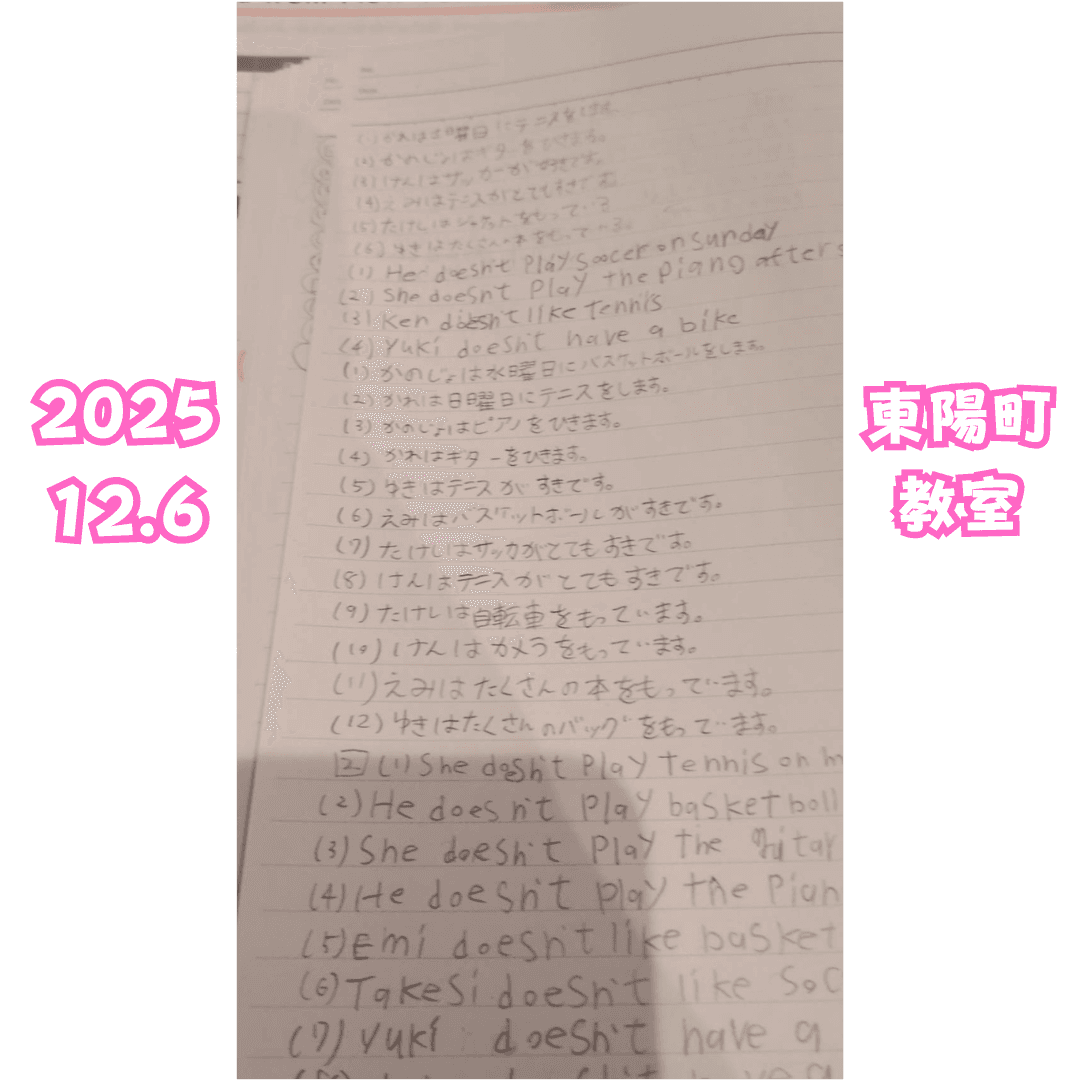 2025
12.6
東陽町
教室
(1)かれは日曜日にテニスをします
(2)かのじょはギターをひきます。
(3)けんはサッカーがすきです。
(4)えみはテニスがとてもすきです
(5)たけしは をもっている
(6)ゆきはたくさん本をもっている。
(1) He doesn't play soocer on sunday
(2) She doesn't play the piano after
(3) Ken doesn't like tennis
(4) Yuki doesn't have a bike
(1)かのじょは水曜日にバスケットボールをします。
(2)かれは日曜日にテニスをします。
(3)かのじょはピアノをひきます。
(4)かれはギターをひきます。
(5)ゆきはテニスがすきです。
(6)えみはバスケットボールがすきです。
(7)たけしはサッカがとてもすきです。
(8)けんはテニスがとてもすきです。
(9)たけしは自転車をもっています。
(10)けんはカメラをもっています。
(11)えみはたくさんの本をもっています。
(12)ゆきはたくさんのバッグをもっています。
2 (1) She doesn't play tennis on
(2) He doesn't play basketboll
(3) She doesn't play the guitar
(4) He doesn't play the pian
(5) Emi doesn't like basket
(6) Takesi doesn't like soc
(7) Yuki doesn't have a